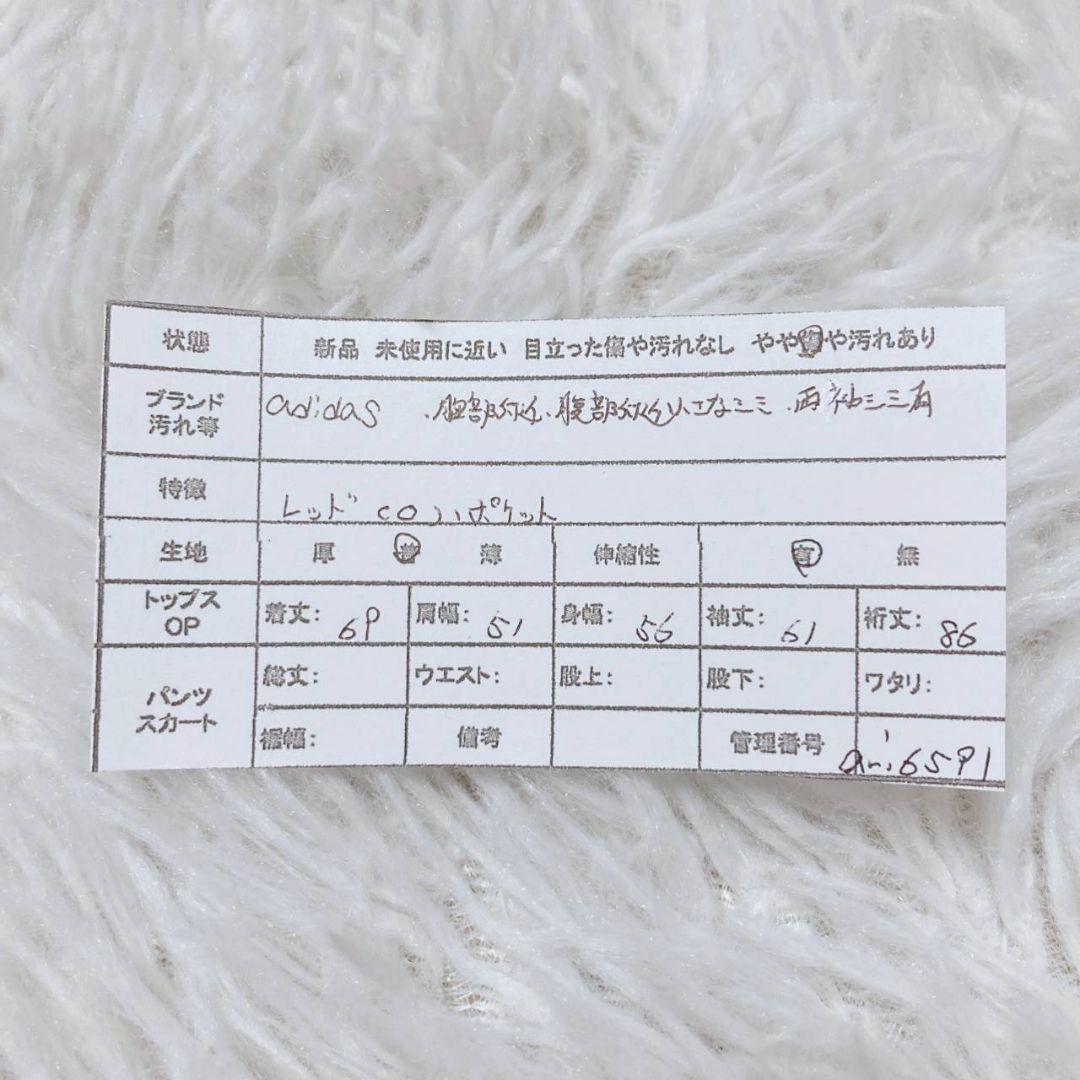 状態 新品 未使用に近い 目立った傷や汚れなし やや傷や汚れあり
ブランド 汚れ等 adidas 、胸部付近、腹部付近小さなシミ、両袖シミ有
特徴 レッド ポケット
生地 厚 普 薄 伸縮性 有 無
トップス OP 着丈: 69 肩幅: 51 身幅: 56 袖丈: 61 裄丈: 86
パンツ スカート 総丈: ウエスト: 股上: 股下: ワタリ:
裾幅: 備考 管理番号 ari6591